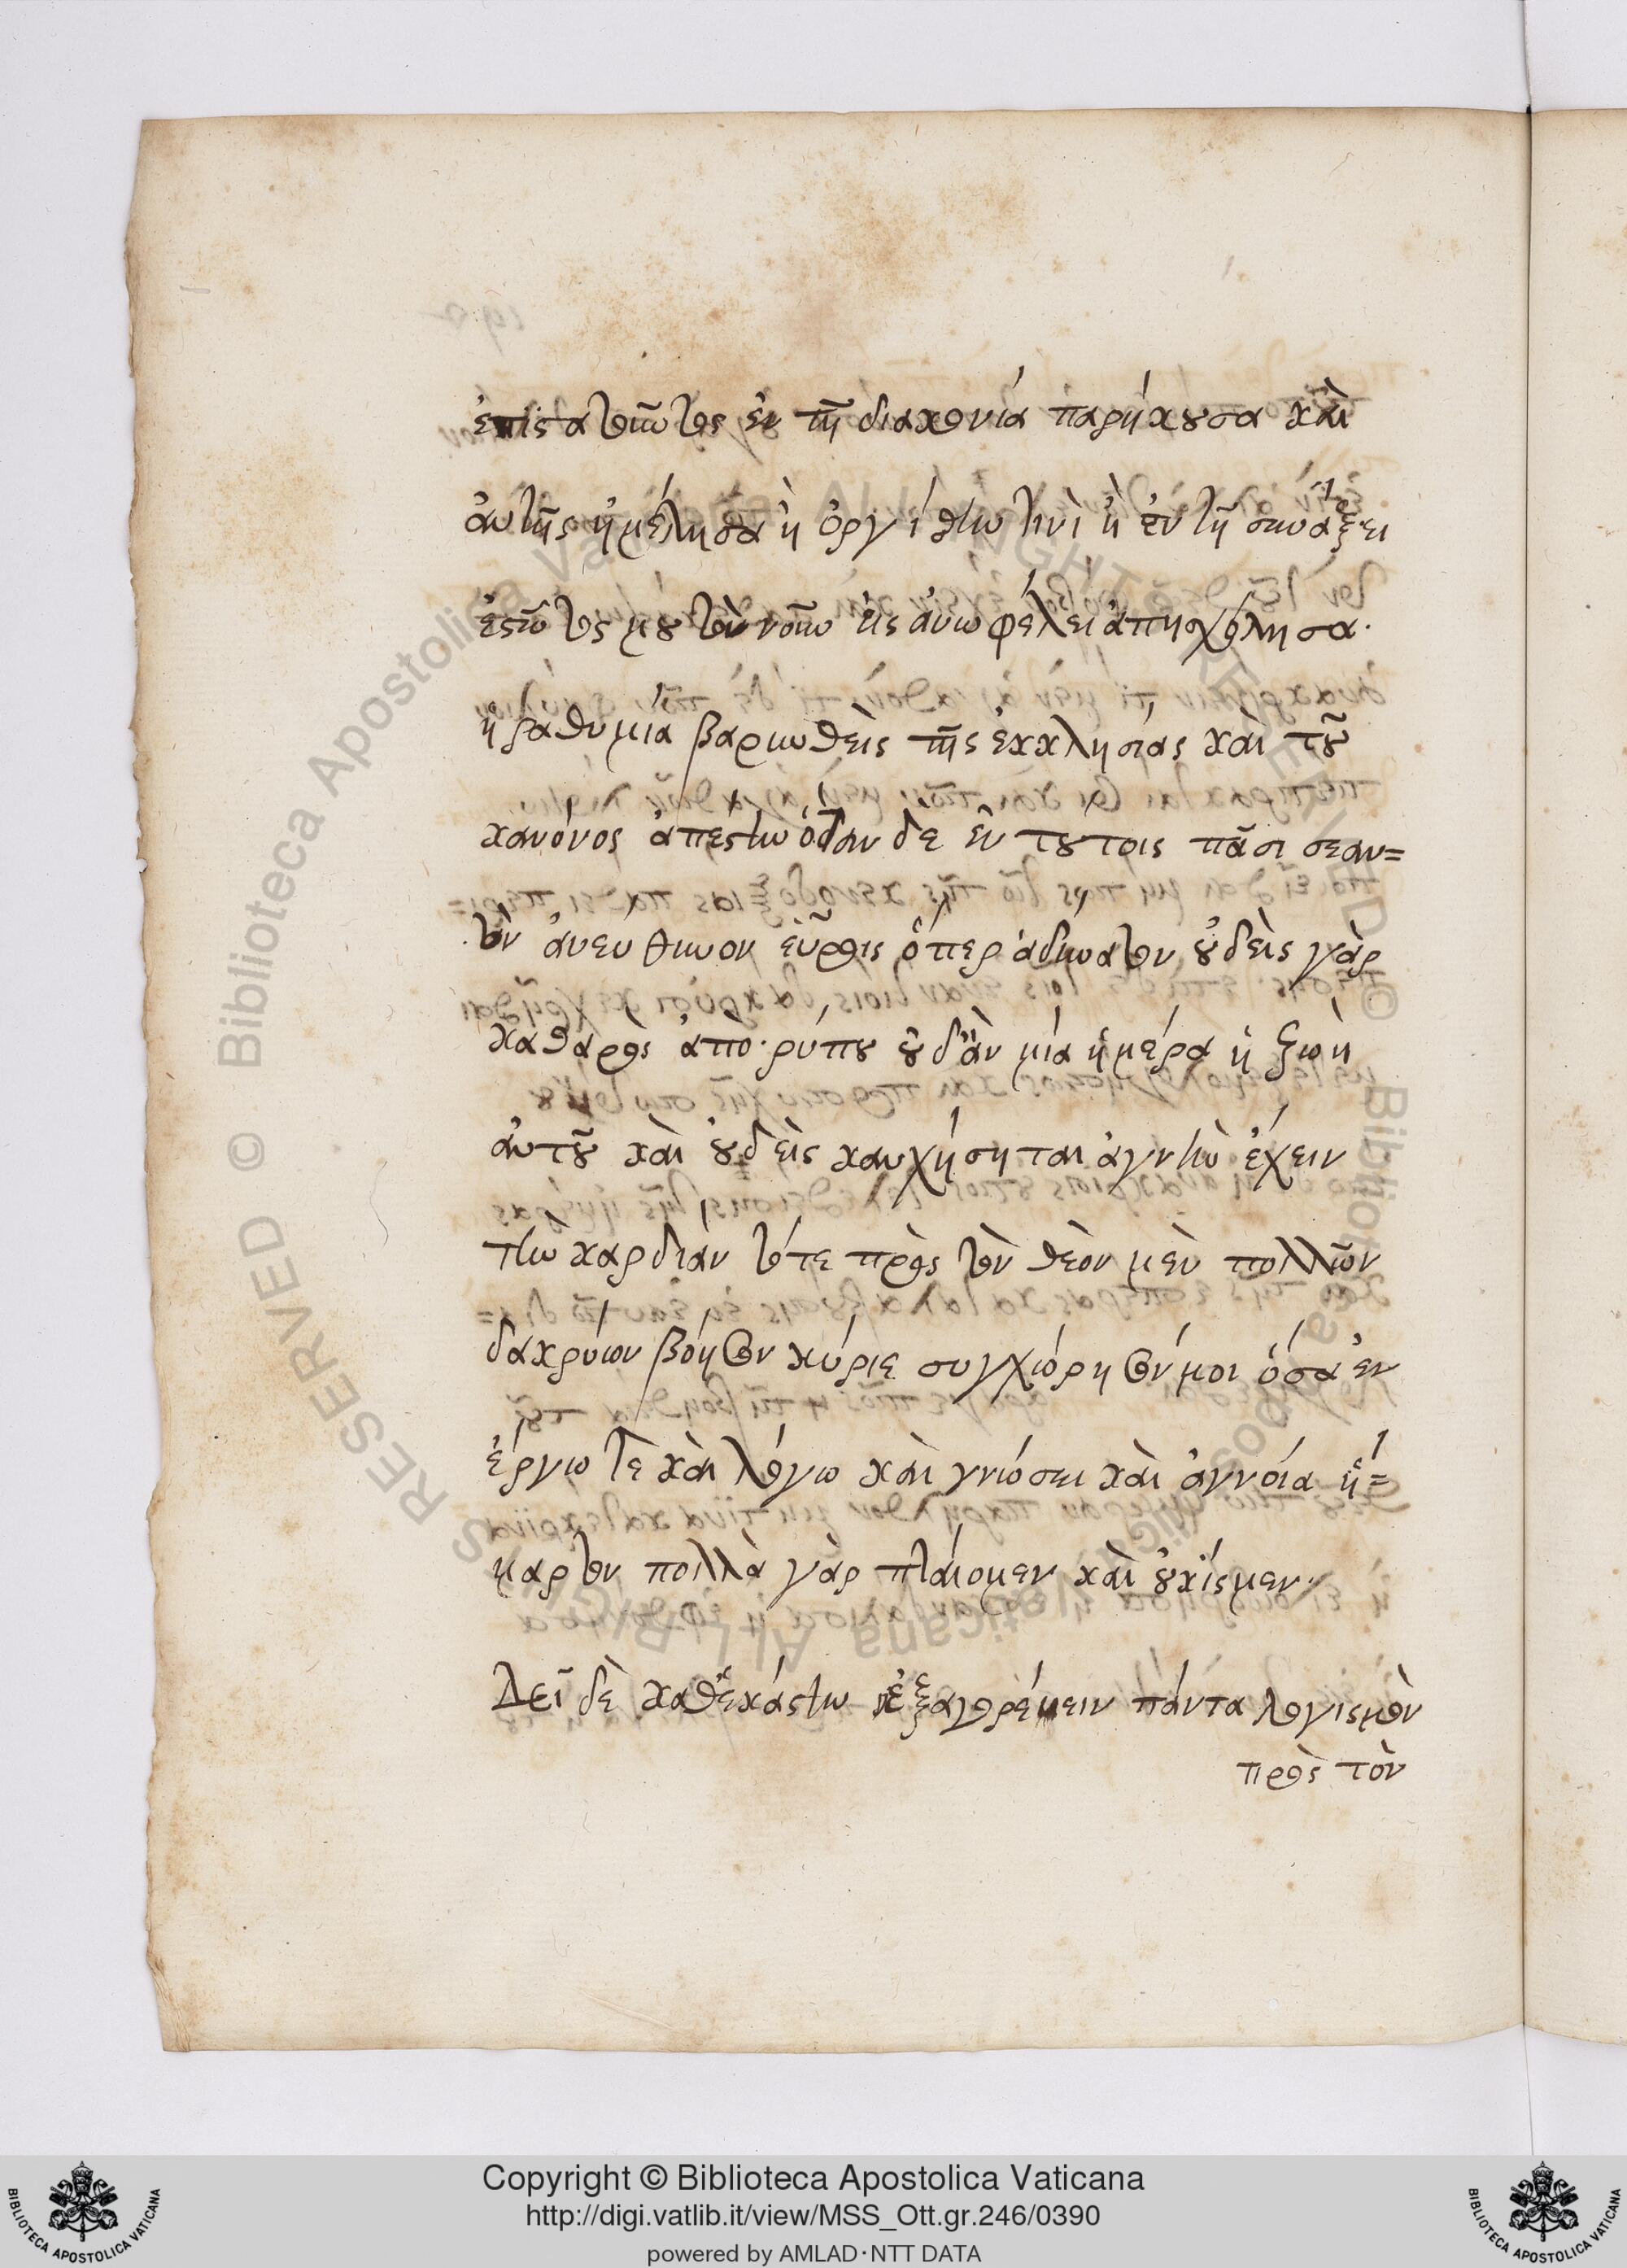 ἐπιστατοῦντος ἐν τῇ διακονία παρήκουσα καὶ
αὐτῆς ἠμέλησα ἢ ὀργίσθην τινὶ ἢ ἐν τῇ συνάξει
ἑστῶτός μου τὸν νοῦν εἰς ἀνωφέλει ἀπησχόλησα.
ἢ ραθυμία βαρυνθεὶς τῆς ἐκκλησίας καὶ τοῦ
κανόνος ἀπέστην ὅταν δε ἐν τούτοις πᾶσι σεαυ=
τὸν ἀνεύθυνον εὕροις ὅπερ ἀδύνατον οὐδεὶς γὰρ
καθαρὸς ἀπο ρύπου οὐδ' ἂν μία ἡμέρα ἡ ζωὴ
αὐτοῦ καὶ οὐδεὶς καυχήσηται ἁγνὴν ἔχειν
τὴν καρδίαν τότε πρὸς τὸν θεὸν μεὺ πολλῶν
δακρύων βόησον κύριε συγχώρησόν μοι ὅσα ἐν
ἔργω τὲ καὶ λόγω καὶ γνώσει καὶ ἀγνοία ἥ=
μαρτον πολλὰ γὰρ πταίομεν καὶ οὐκ ἴσμεν
Δεῖ δὲ καθ' ἑκάστην ἐξαγορεύειν πάντα λογισμὸν
πρὸς τὸν
Copyright © Biblioteca Apostolica Vaticana
http://digi.vatlib.it/view/MSS_Ott.gr.246/0390
powered by AMLAD·NTT DATA
BIBLIOTECA APOSTOLICA VATICANA
BIBLIOTECA APOSTOLICA VATICANA